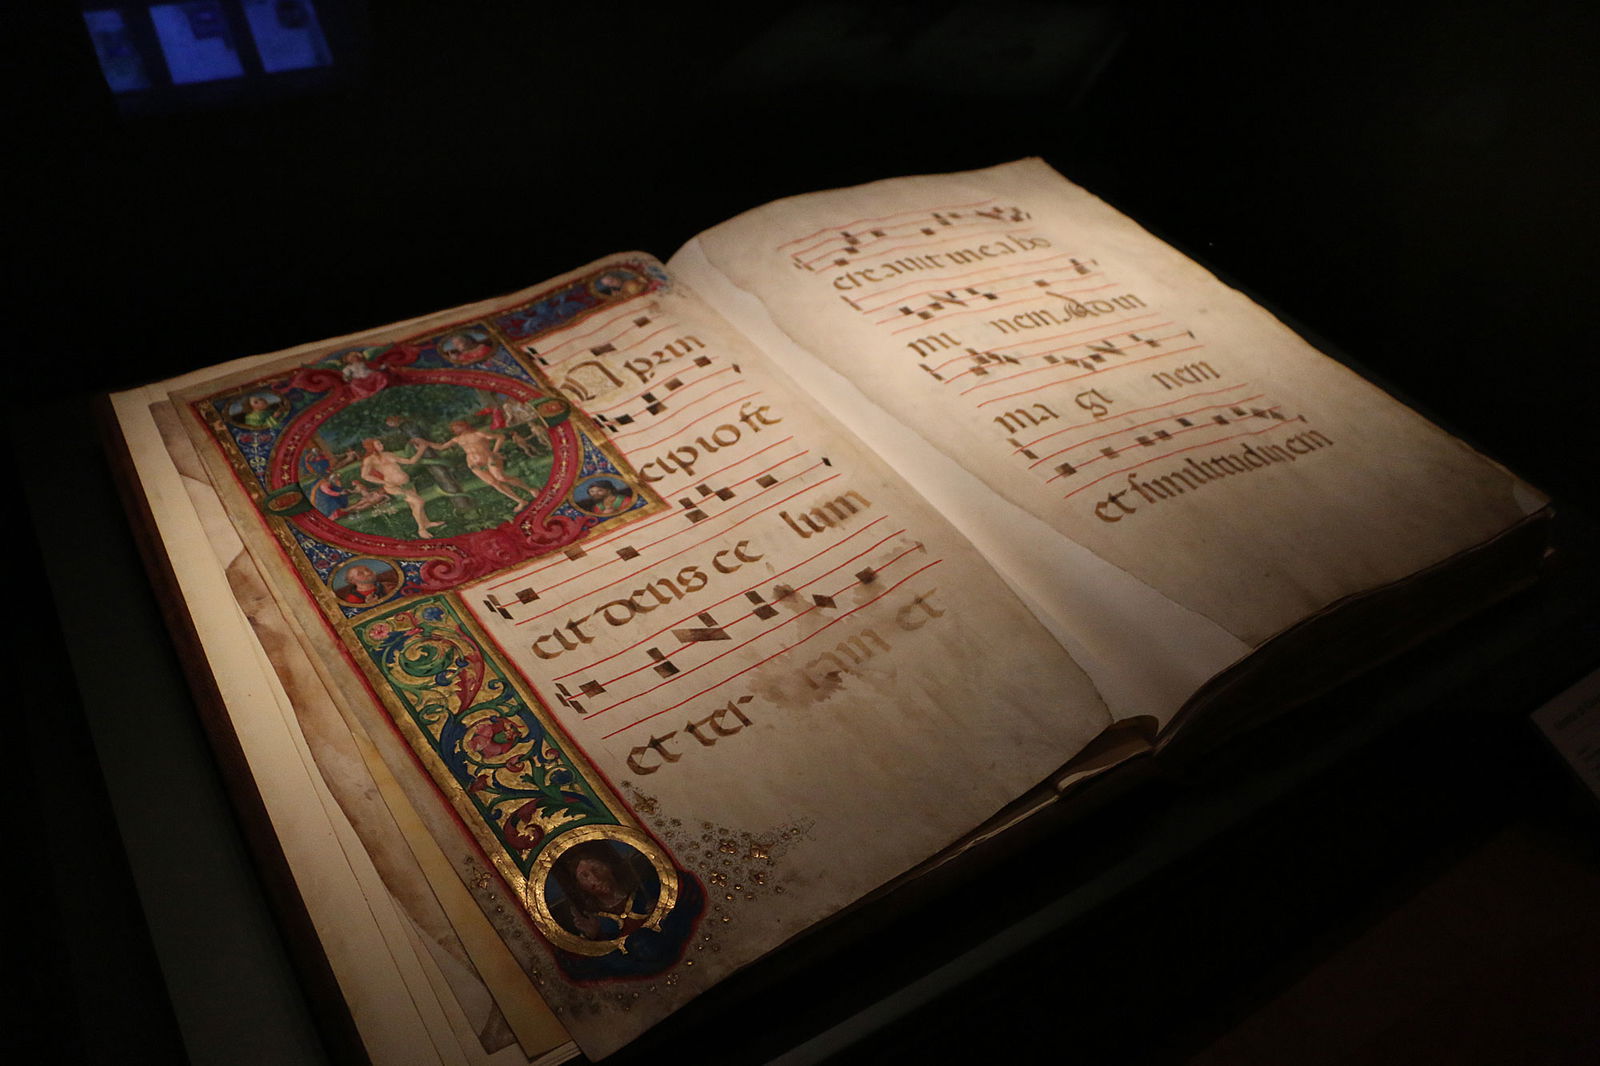 N prin
cipio fe
cit deus ce lum
et ter ram et
creauit in ea ho
mi nem. Ad im
ma gi nem
et similitudinem